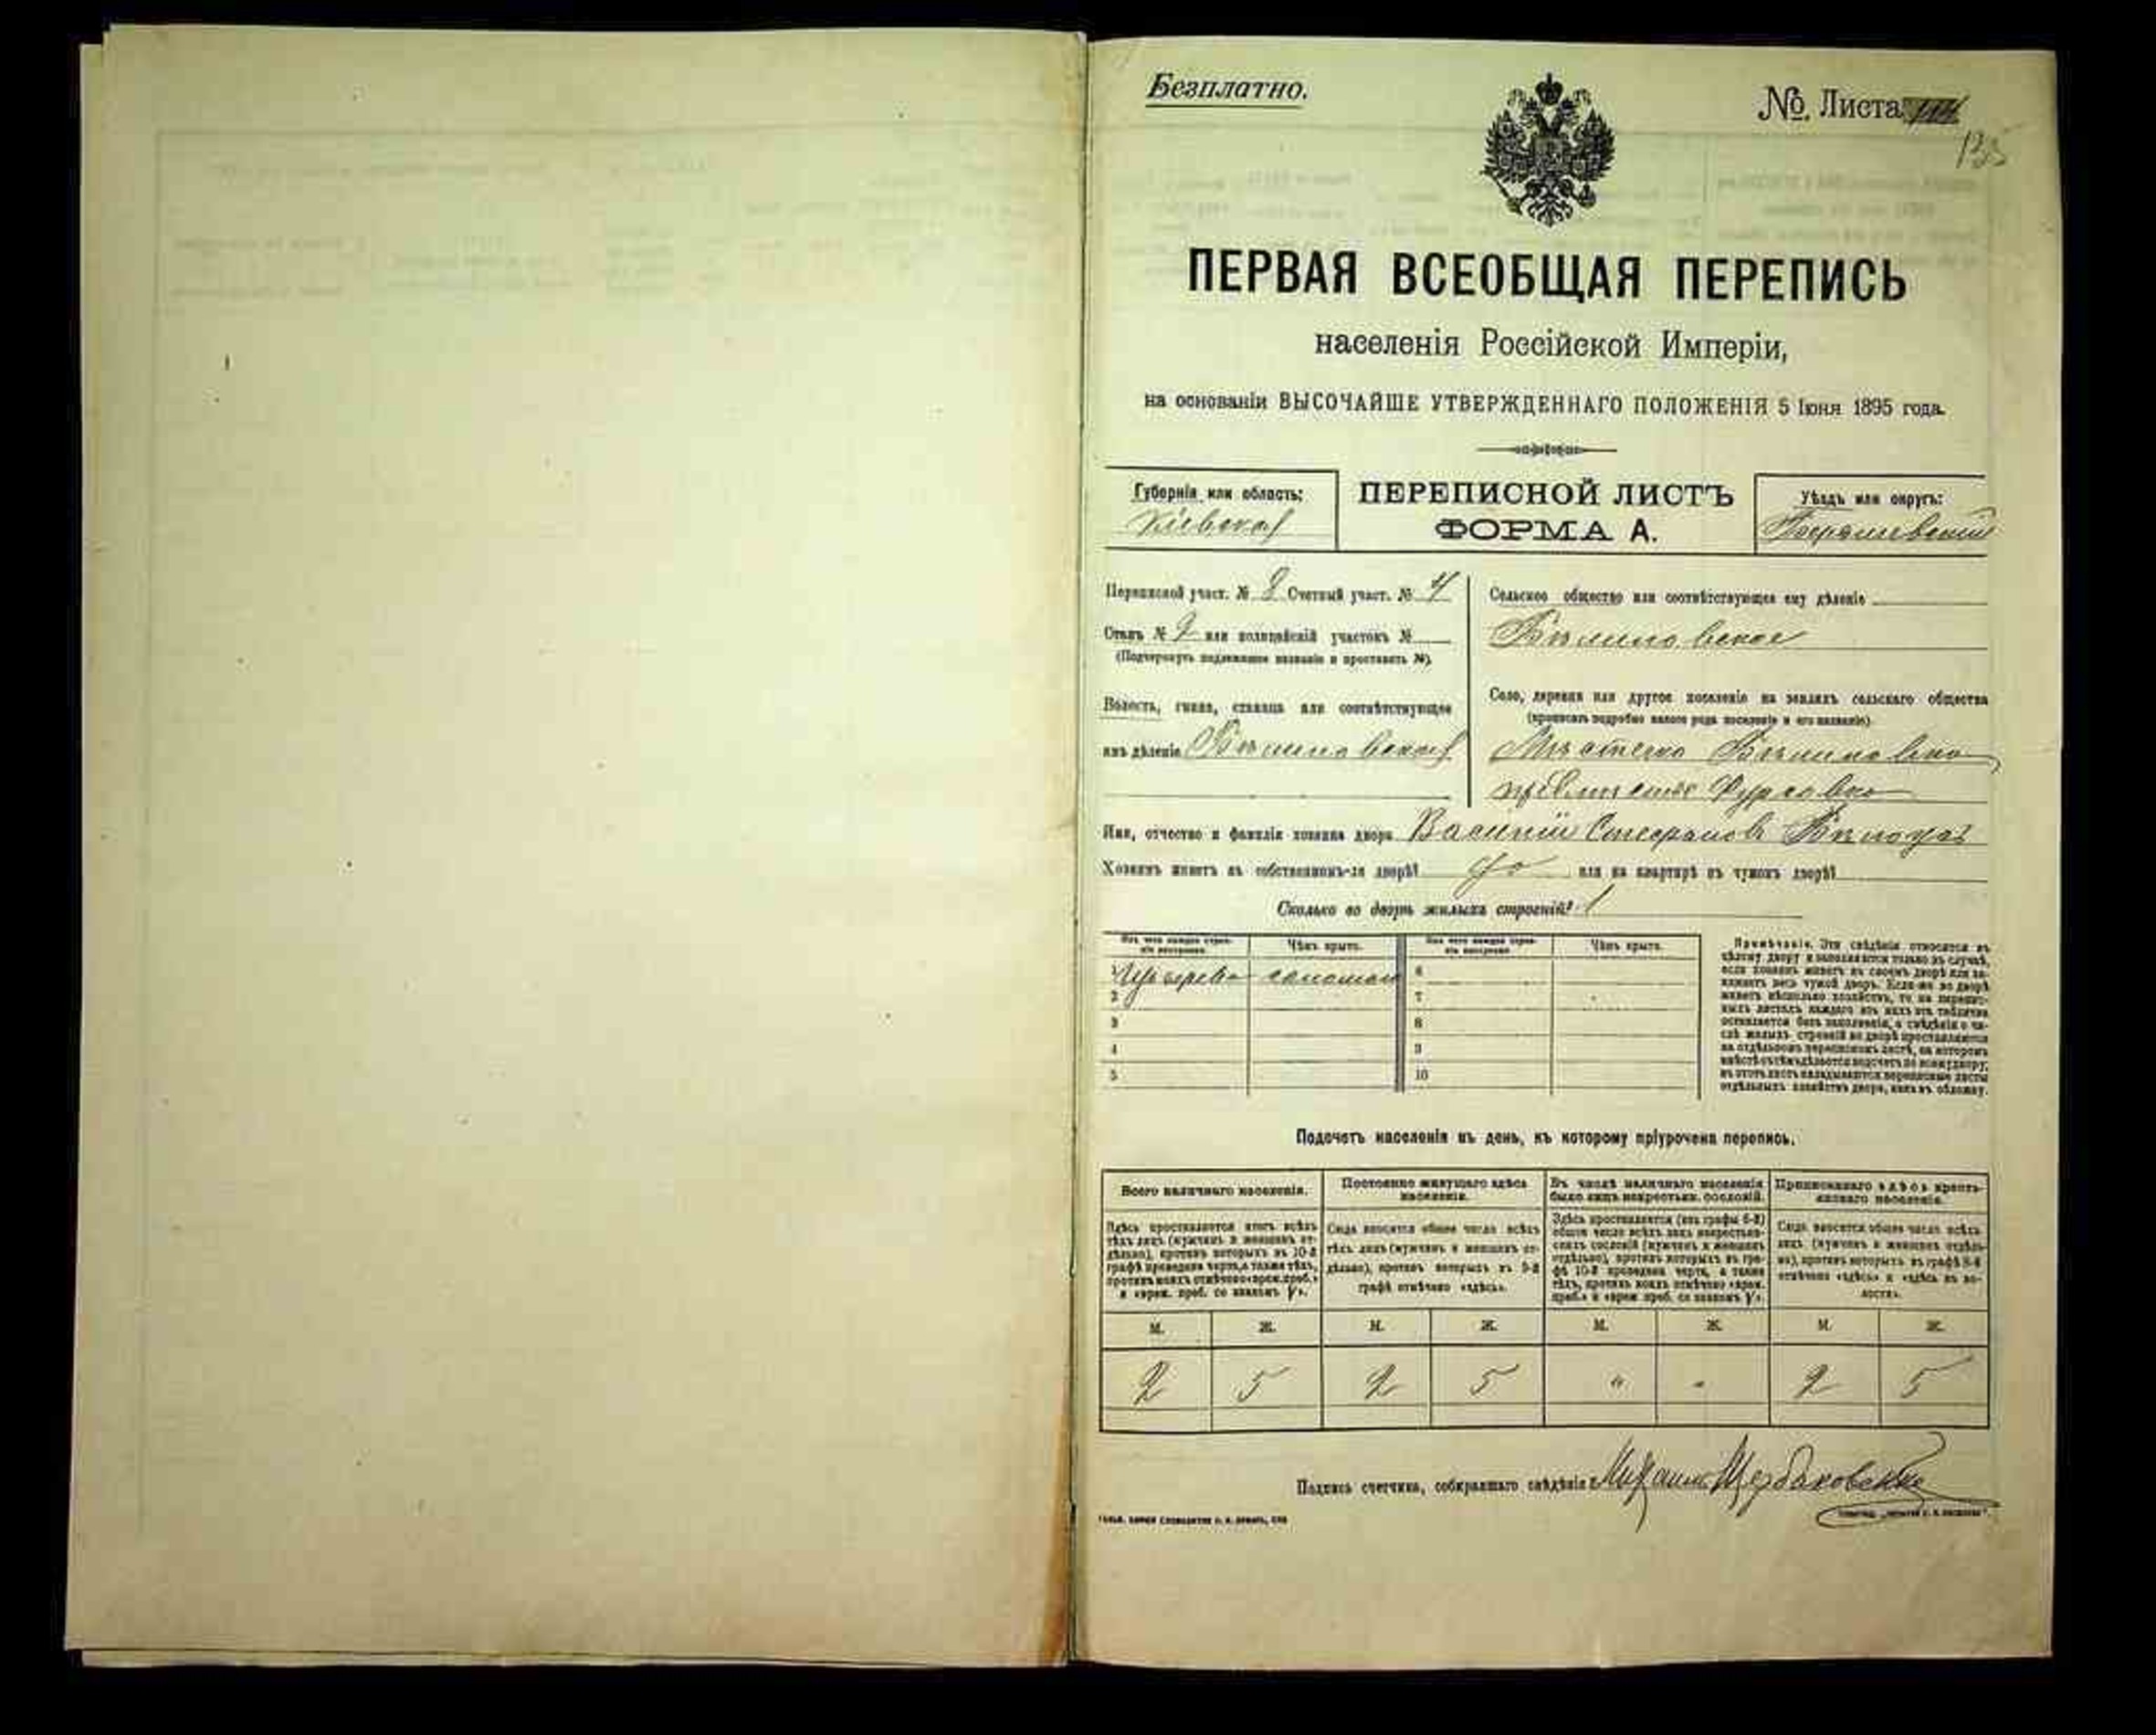 Безплатно.
№. Листа
135
ПЕРВАЯ ВСЕОБЩАЯ ПЕРЕПИСЬ
населенія Россійской Имперіи,
на основаніи ВЫСОЧАЙШЕ УТВЕРЖДЕННАГО ПОЛОЖЕНІЯ 5 Іюня 1895 года.
Губернія или область:
Кіевская
ПЕРЕПИСНОЙ ЛИСТЪ
ФОРМА А.
Уѣздъ или округъ:
Переписной участ. № 8 Счетный участ. № 4
Станъ № 2 или полицейскій участокъ №
(Подчеркнуть подлежащее названіе и проставить №).
Волость, гмина, станица или соотвѣтствующее
имъ дѣленіе Бѣлиловская
Сельское общество или соотвѣтствующее ему дѣленіе
Бѣлиловское
Село, деревня или другое поселеніе на земляхъ сельскаго общества
(прописать подробно какого рода поселеніе и его названіе)
Мѣстечко Бѣлиловка
предмѣстье
Имя, отчество и фамилія хозяина двора Василій Стефановъ
Хозяинъ живетъ въ собственномъ-ли дворѣ? да или на квартирѣ въ чужомъ дворѣ?
Сколько во дворѣ жилыхъ строеній? 1
Изъ чего каждое строеніе построено.
Чѣмъ крыто.
Изъ чего каждое строеніе построено.
Чѣмъ крыто.
1 Изъ дерева соломою 6
2 7
3 8
4 9
5 10
Примѣчаніе. Эти свѣдѣнія относятся къ
цѣлому двору и заполняются только въ случаѣ,
если хозяинъ живетъ въ своемъ дворѣ или за-
нимаетъ весь чужой дворъ. Если-же во дворѣ
живетъ нѣсколько хозяйствъ, то на перепис-
ныхъ листахъ каждаго изъ нихъ эта табличка
оставляется безъ заполненія, а свѣдѣнія о чи-
слѣ жилыхъ строеній во дворѣ проставляются
на отдѣльномъ переписномъ листѣ, на которомъ
вмѣстѣ съ тѣмъ дѣлается подсчетъ по всему двору;
въ этотъ листъ вкладываются переписные листы
отдѣльныхъ хозяйствъ двора, какъ въ обложку.
Подсчетъ населенія въ день, къ которому пріурочена перепись.
Всего наличнаго населенія.
Здѣсь проставляется итогъ всѣхъ
тѣхъ лицъ (мужчинъ и женщинъ от-
дѣльно), противъ которыхъ въ 10-й
графѣ проведена черта, а также тѣхъ,
противъ коихъ отмѣчено «врем. преб.»
и «врем. преб. со знакомъ V».
Постоянно живущаго здѣсь
населенія.
Сюда вносится общее число всѣхъ
тѣхъ лицъ (мужчинъ и женщинъ от-
дѣльно), противъ которыхъ въ 9-й
графѣ отмѣчено «здѣсь».
Въ числѣ наличнаго населенія
было лицъ некрестьян. сословій.
Здѣсь проставляется (изъ графы 6-й)
общее число всѣхъ лицъ некрестьян-
скихъ сословій (мужчинъ и женщинъ
отдѣльно), противъ которыхъ въ гра-
фѣ 10-й проведена черта, а также
тѣхъ, противъ коихъ отмѣчено «врем.
преб.» и «врем. преб. со знакомъ V».
Приписаннаго здѣсь кресть-
янскаго населенія.
Сюда вносится общее число всѣхъ
лицъ (мужчинъ и женщинъ отдѣль-
но), противъ которыхъ въ графѣ 8-й
отмѣчено «здѣсь» и «здѣсь въ во-
лости».
М. Ж. М. Ж. М. Ж. М. Ж.
2 5 2 5 " " 2 5
Подпись счетчика, собиравшаго свѣдѣнія: Михаилъ Щербаковскій